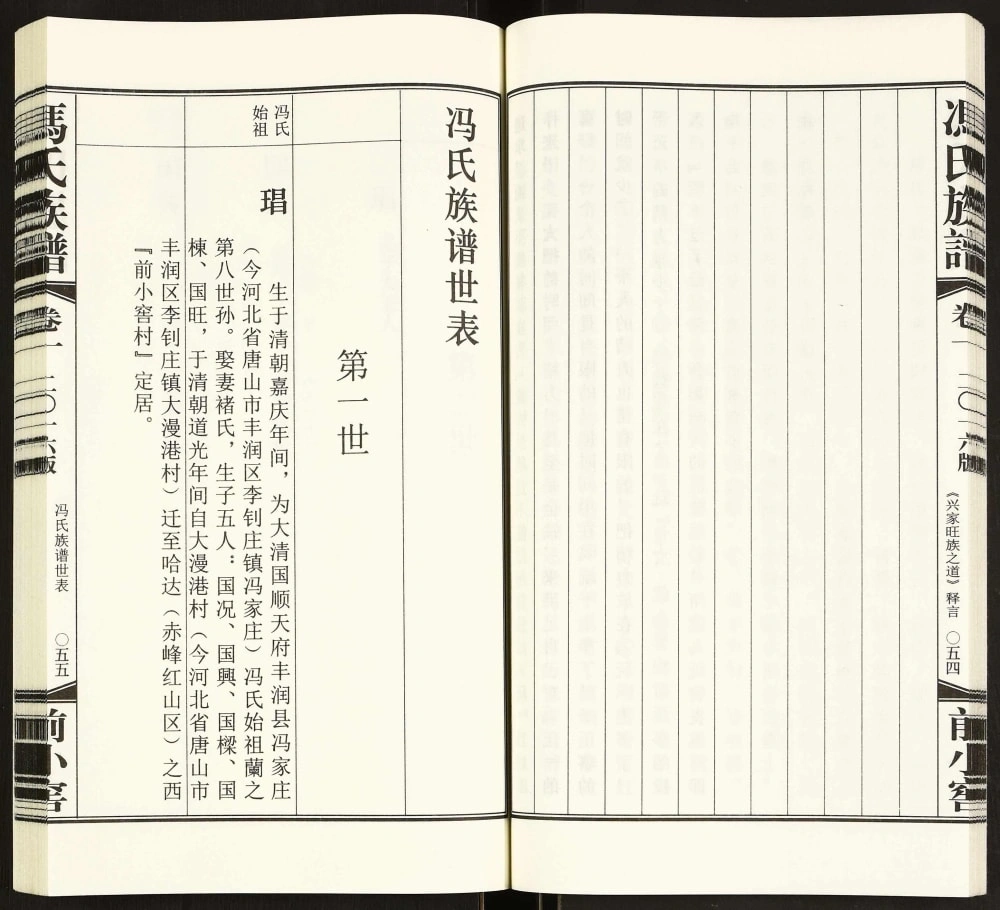 馮氏族譜
卷一
二〇一六版
《兴家旺族之道》释言
〇五四
前小窖
冯氏族谱世表
第一世
冯氏
始祖
琩
生于清朝嘉庆年间，为大清国顺天府丰润县冯家庄
（今河北省唐山市丰润区李钊庄镇冯家庄）冯氏始祖蘭之
第八世孙。娶妻褚氏，生子五人：国况、国興、国樑、国
棟、国旺，于清朝道光年间自大漫港村（今河北省唐山市
丰润区李钊庄镇大漫港村）迁至哈达（赤峰红山区）之西
『前小窖村』定居。
馮氏族譜
卷一
二〇一六版
冯氏族谱世表
〇五五
前小窖